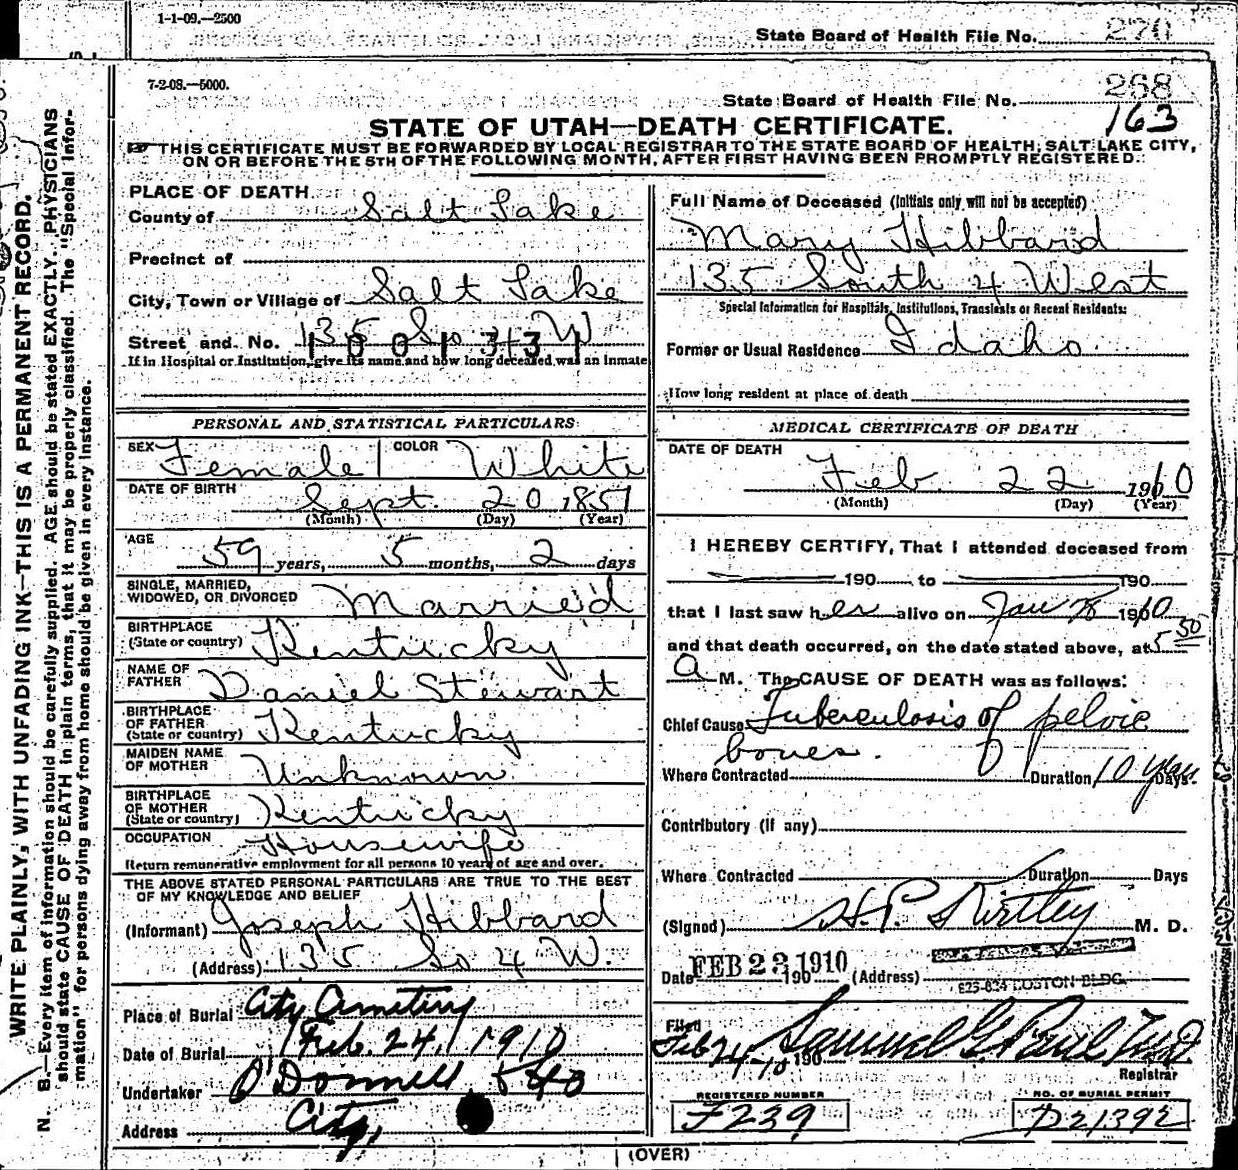 1-1-09.—2500
State Board of Health File No. 270
7-2-08.—5000.
268
State Board of Health File No.
163
STATE OF UTAH—DEATH CERTIFICATE.
☞ THIS CERTIFICATE MUST BE FORWARDED BY LOCAL REGISTRAR TO THE STATE BOARD OF HEALTH, SALT LAKE CITY,
ON OR BEFORE THE 5TH OF THE FOLLOWING MONTH, AFTER FIRST HAVING BEEN PROMPTLY REGISTERED.
WRITE PLAINLY, WITH UNFADING INK—THIS IS A PERMANENT RECORD.
N. B.—Every item of information should be carefully supplied. AGE should be stated EXACTLY. PHYSICIANS
should state CAUSE OF DEATH in plain terms, that it may be properly classified. The "Special Infor-
mation" for persons dying away from home should be given in every instance.
PLACE OF DEATH
County of Salt Lake
Precinct of
City, Town or Village of Salt Lake
Street and No. 135 So 4 W
1001331
If in Hospital or Institution, give its name and how long deceased was an inmate
PERSONAL AND STATISTICAL PARTICULARS
SEX Female COLOR White
DATE OF BIRTH Sept. 20 1851
(Month) (Day) (Year)
AGE
59 years, 5 months, 2 days
SINGLE, MARRIED,
WIDOWED, OR DIVORCED Married
BIRTHPLACE
(State or country) Kentucky
NAME OF
FATHER Daniel Stewart
BIRTHPLACE
OF FATHER
(State or country) Kentucky
MAIDEN NAME
OF MOTHER Unknown
BIRTHPLACE
OF MOTHER
(State or country) Kentucky
OCCUPATION Housewife
Return remunerative employment for all persons 10 years of age and over.
THE ABOVE STATED PERSONAL PARTICULARS ARE TRUE TO THE BEST
OF MY KNOWLEDGE AND BELIEF
(Informant) Joseph Hibbard
(Address) 135 So 4 W.
Place of Burial City Cemetery
Date of Burial Feb. 24, 1910
Undertaker O'Donnell & Co
Address City,
Full Name of Deceased (Initials only will not be accepted)
Mary Hibbard
135 South 4 West
Special Information for Hospitals, Institutions, Transients or Recent Residents:
Former or Usual Residence Idaho
How long resident at place of death
MEDICAL CERTIFICATE OF DEATH
DATE OF DEATH
Feb. 22 1910
(Month) (Day) (Year)
I HEREBY CERTIFY, That I attended deceased from
190 to 190
that I last saw her alive on Jan 8 1910
and that death occurred, on the date stated above, at 5 50
A M. The CAUSE OF DEATH was as follows:
Chief Cause Tuberculosis of pelvic
bones.
Where Contracted Duration 10 years Days.
Contributory (if any)
Where Contracted Duration Days
(Signed) H.P. Kirtley M. D.
Date FEB 23 1910 190 (Address) BOSTON BLDG.
Filed
Feb 24 - 10 190 Samuel G. Paul
Registrar
REGISTERED NUMBER
F239
NO. OF BURIAL PERMIT
D21392
(OVER)